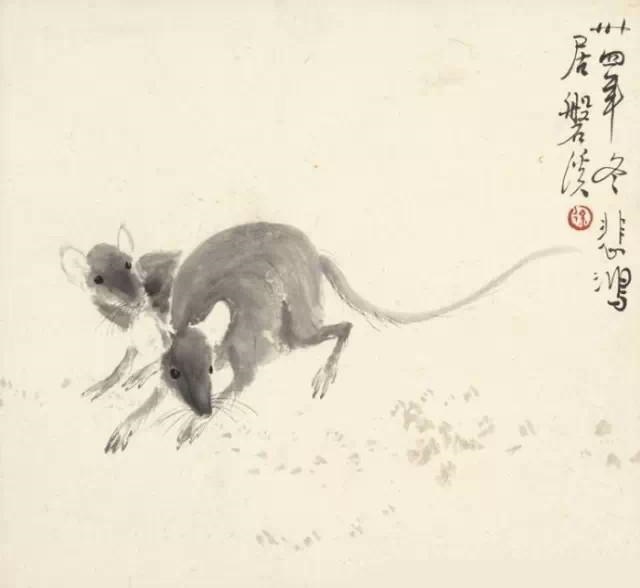 卅四年冬 悲鴻
居磐溪